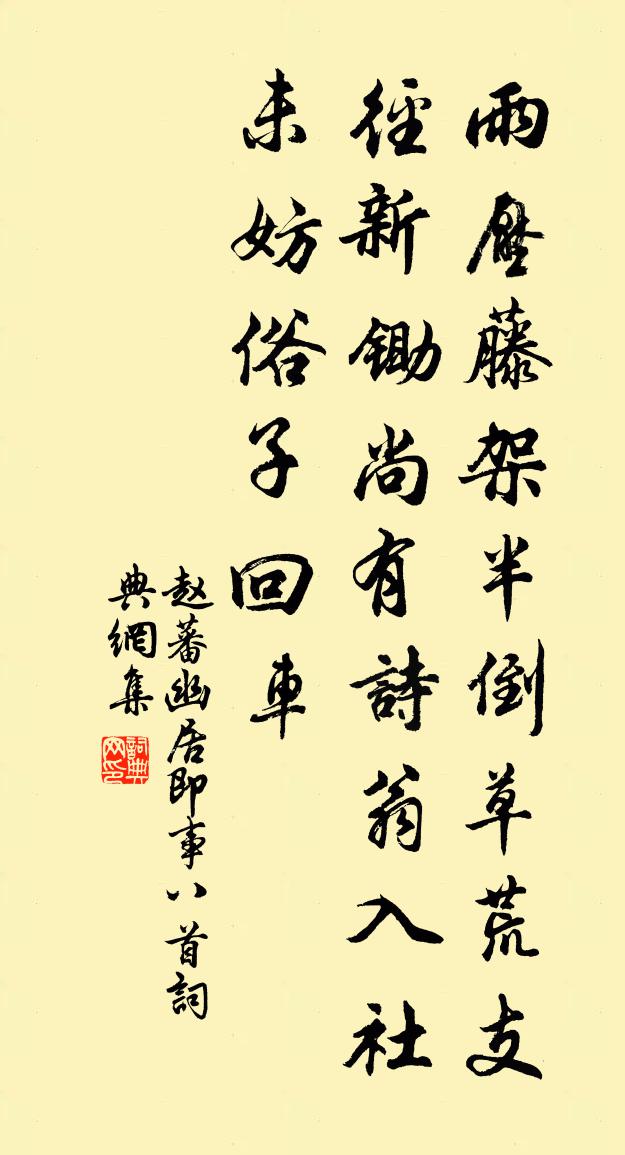 雨壓藤架半倒草荒支
徑新鋤尚有詩翁入社
未妨俗子回車
赵蕃幽居即事八首詞
典網集
詞典
网印